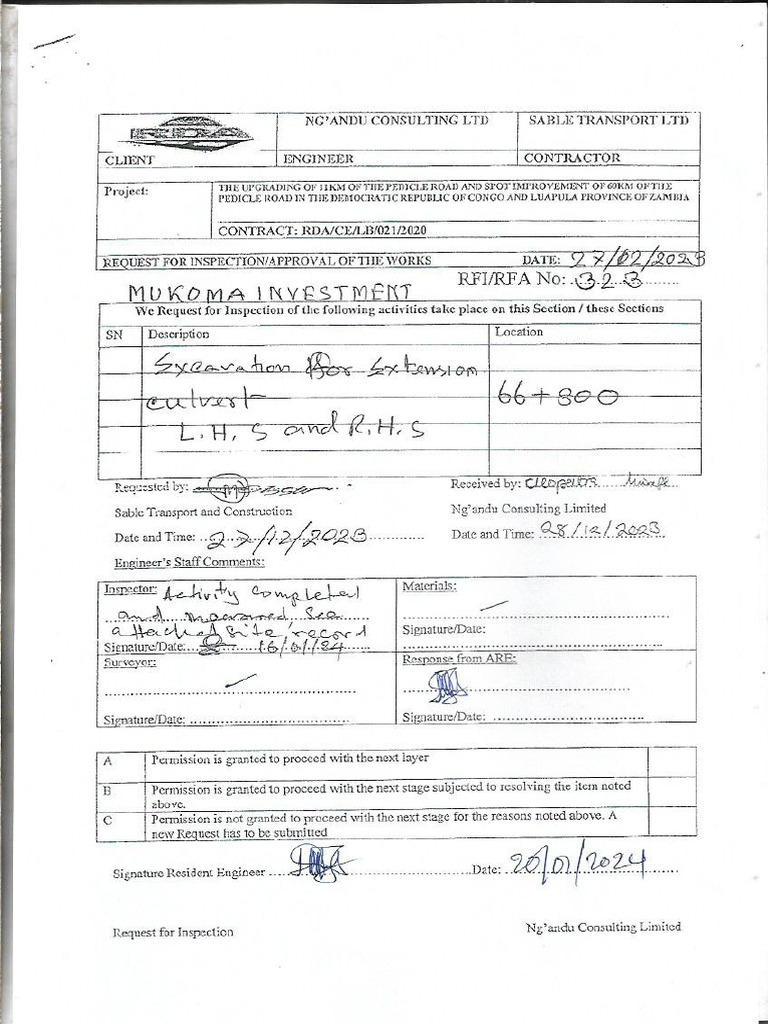 RDA
NG'ANDU CONSULTING LTD
SABLE TRANSPORT LTD
CLIENT
ENGINEER
CONTRACTOR
Project:
THE UPGRADING OF 11KM OF THE PEDICLE ROAD AND SPOT IMPROVEMENT OF 60KM OF THE
PEDICLE ROAD IN THE DEMOCRATIC REPUBLIC OF CONGO AND LUAPULA PROVINCE OF ZAMBIA
CONTRACT: RDA/CE/LB/021/2020
REQUEST FOR INSPECTION/APPROVAL OF THE WORKS DATE: 27/12/2023
RFI/RFA No: 323
MUKOMA INVESTMENT
We Request for Inspection of the following activities take place on this Section / these Sections
SN Description Location
Excavation for Extension
culvert 66+800
L.H.S and R.H.S
Requested by:
Received by: Cleopatra
Sable Transport and Construction
Ng'andu Consulting Limited
Date and Time: 27/12/2023
Date and Time: 28/12/2023
Engineer's Staff Comments:
Inspector: Activity completed
and measured see
attached site record
Signature/Date: 16/01/24
Materials:
Signature/Date:
Surveyor:
Signature/Date:
Response from ARE:
Signature/Date:
A Permission is granted to proceed with the next layer
B Permission is granted to proceed with the next stage subjected to resolving the item noted
above.
C Permission is not granted to proceed with the next stage for the reasons noted above. A
new Request has to be submitted
Signature Resident Engineer Date: 20/01/2024
Request for Inspection
Ng'andu Consulting Limited